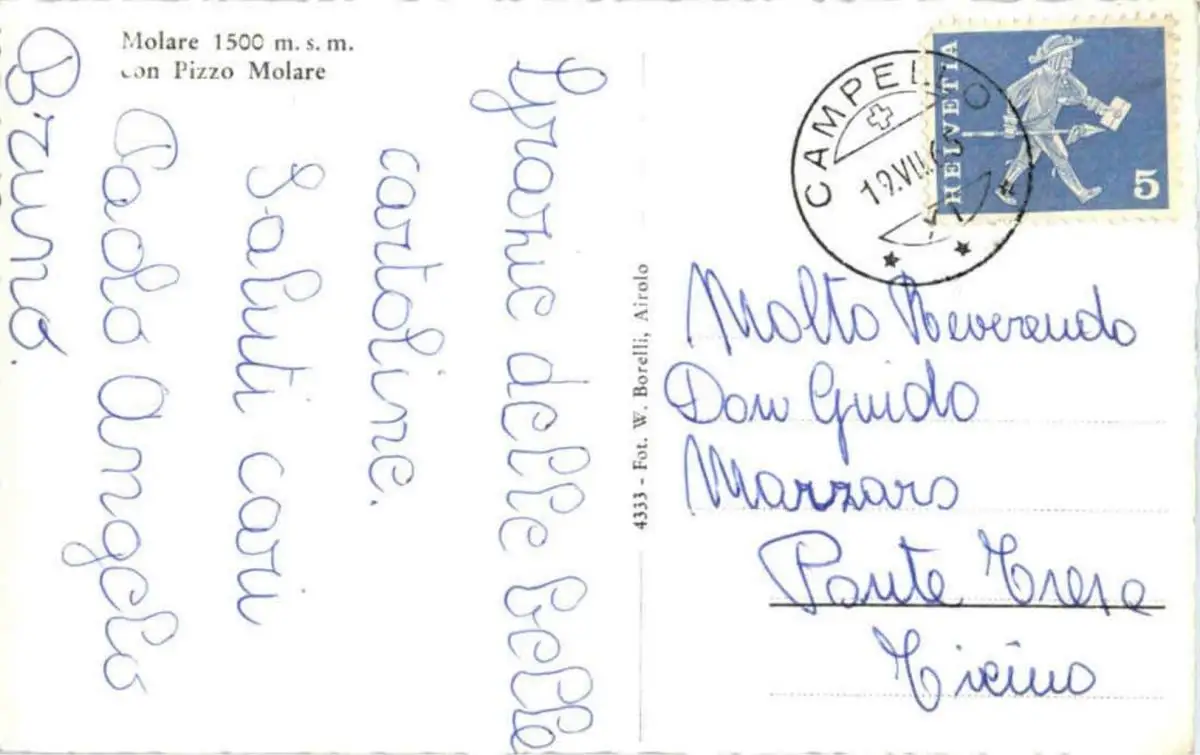 Molare 1500 m. s. m.
con Pizzo Molare
Grazie delle belle
cartoline.
Saluti cari
Paolo Angelo
Bruno.
4333 - Fot. W. Borelli, Airolo
CAMPELLO
HELVETIA
5
Molto Reverendo
Don Guido
Marzaro
Ponte Tresa
Ticino